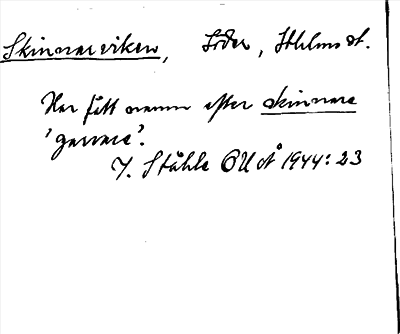 Skinnareviken, Söder, Sthlms st.
Har fått namn efter skinnare
'garvare'.
Y. Ståhle OUÅ 1944: 23